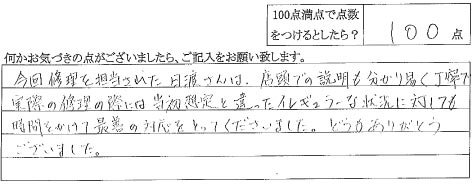 100点満点で点数
をつけるとしたら？ 100 点
何かお気づきの点がございましたら、ご記入をお願い致します。
今回修理を担当された日渡さんは、店頭での説明も分かり易く丁寧で
実際の修理の際には当初想定と違ったイレギュラーな状況に対しても
時間をかけて最善の対応をとってくださいました。どうもありがとう
ございました。